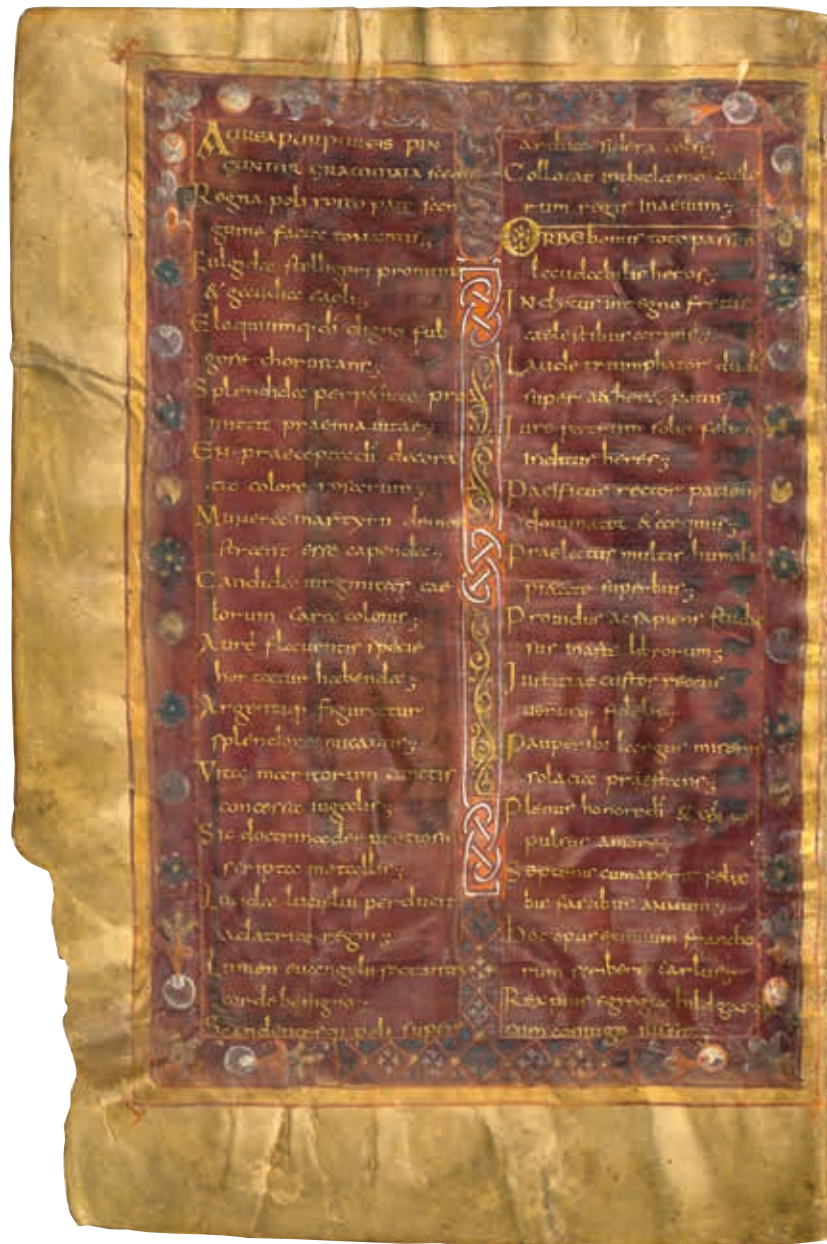 AUREA PURPUREIS PIN
GUNTUR GRAMMATA
Regna poli
guine facta tonantis;
Fulgida stelligeri promunt
& gaudia caeli;
Eloquiumq; di digno ful
gore choruscans;
Splendida perpetuae pro
mittit praemia uitae;
EN praecepta di decora
ta colore rosarum;
Munera martyrii demon
esse capenda;
Candida uirginitas cae
lorum cara colonis;
Auri flauentis specie
hortatur habenda;
Argentuq; figuratur
splendore micantis;
Vita maritorum cunctis
concessa iugalis;
Sic doctrina dei pretiosis
scripta metallis;
Lucida luciflui perducit
ad atria regni;
Lumen euangelii sectantes
corde benigno;
Scandentesq; poli super
ardua sidera celsi;
Collocat in thalamo caelo
rum regis in aeuum;
ORBE bonus toto passim
laudabilis heros;
INclytus in regno fretus
caelestibus armis;
Laude triumphator dudu
super aethera notus;
Iure patrum solio
inclitus heres;
Pacificus rector patiens
dominator & aequus;
Praelectus multis humili
pietate superbus;
Prouidus ac sapiens studio
sus in arte librorum;
Iustitiae custos rectus
uerusq; fidelis;
Pauperib; largus miseris
solacia praestans;
Plenus honore di &
pulsus amore;
Septenis cum aperit felix
bis fascibus annum;
Hoc opus eximium francho
rum scribere carlus;
Rex pius egregia
cum coniuge iussit;